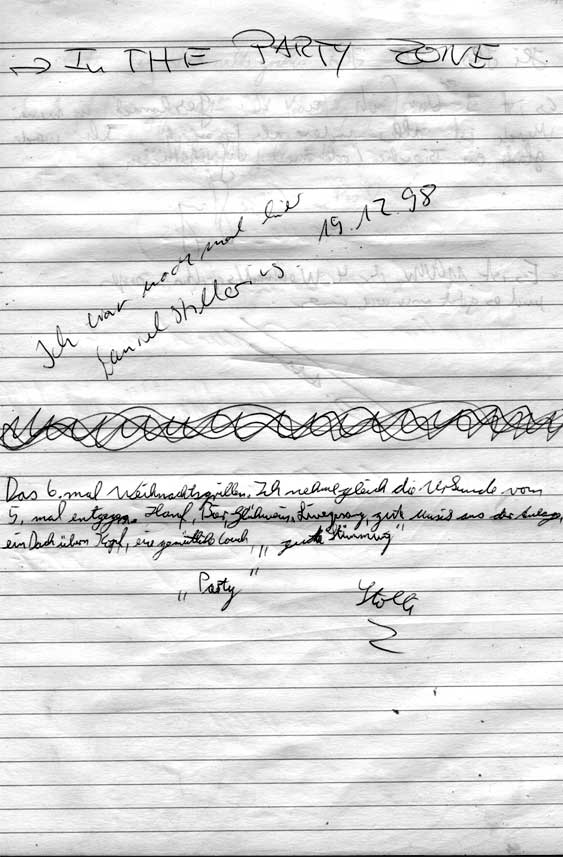 → In THE PARTY ZONE
Ich war noch mal hier 19.12.98
Daniel
Das 6. mal Weihnachtsgrillen. Ich nehme gleich die Urkunde vom
5. mal entgegen. Hanf, Bier, Glühwein, gute Musik aus der Anlage,
ein Dach übern Kopf, eine gemütliche Couch „gute Stimmung"
„Party"
Stolli